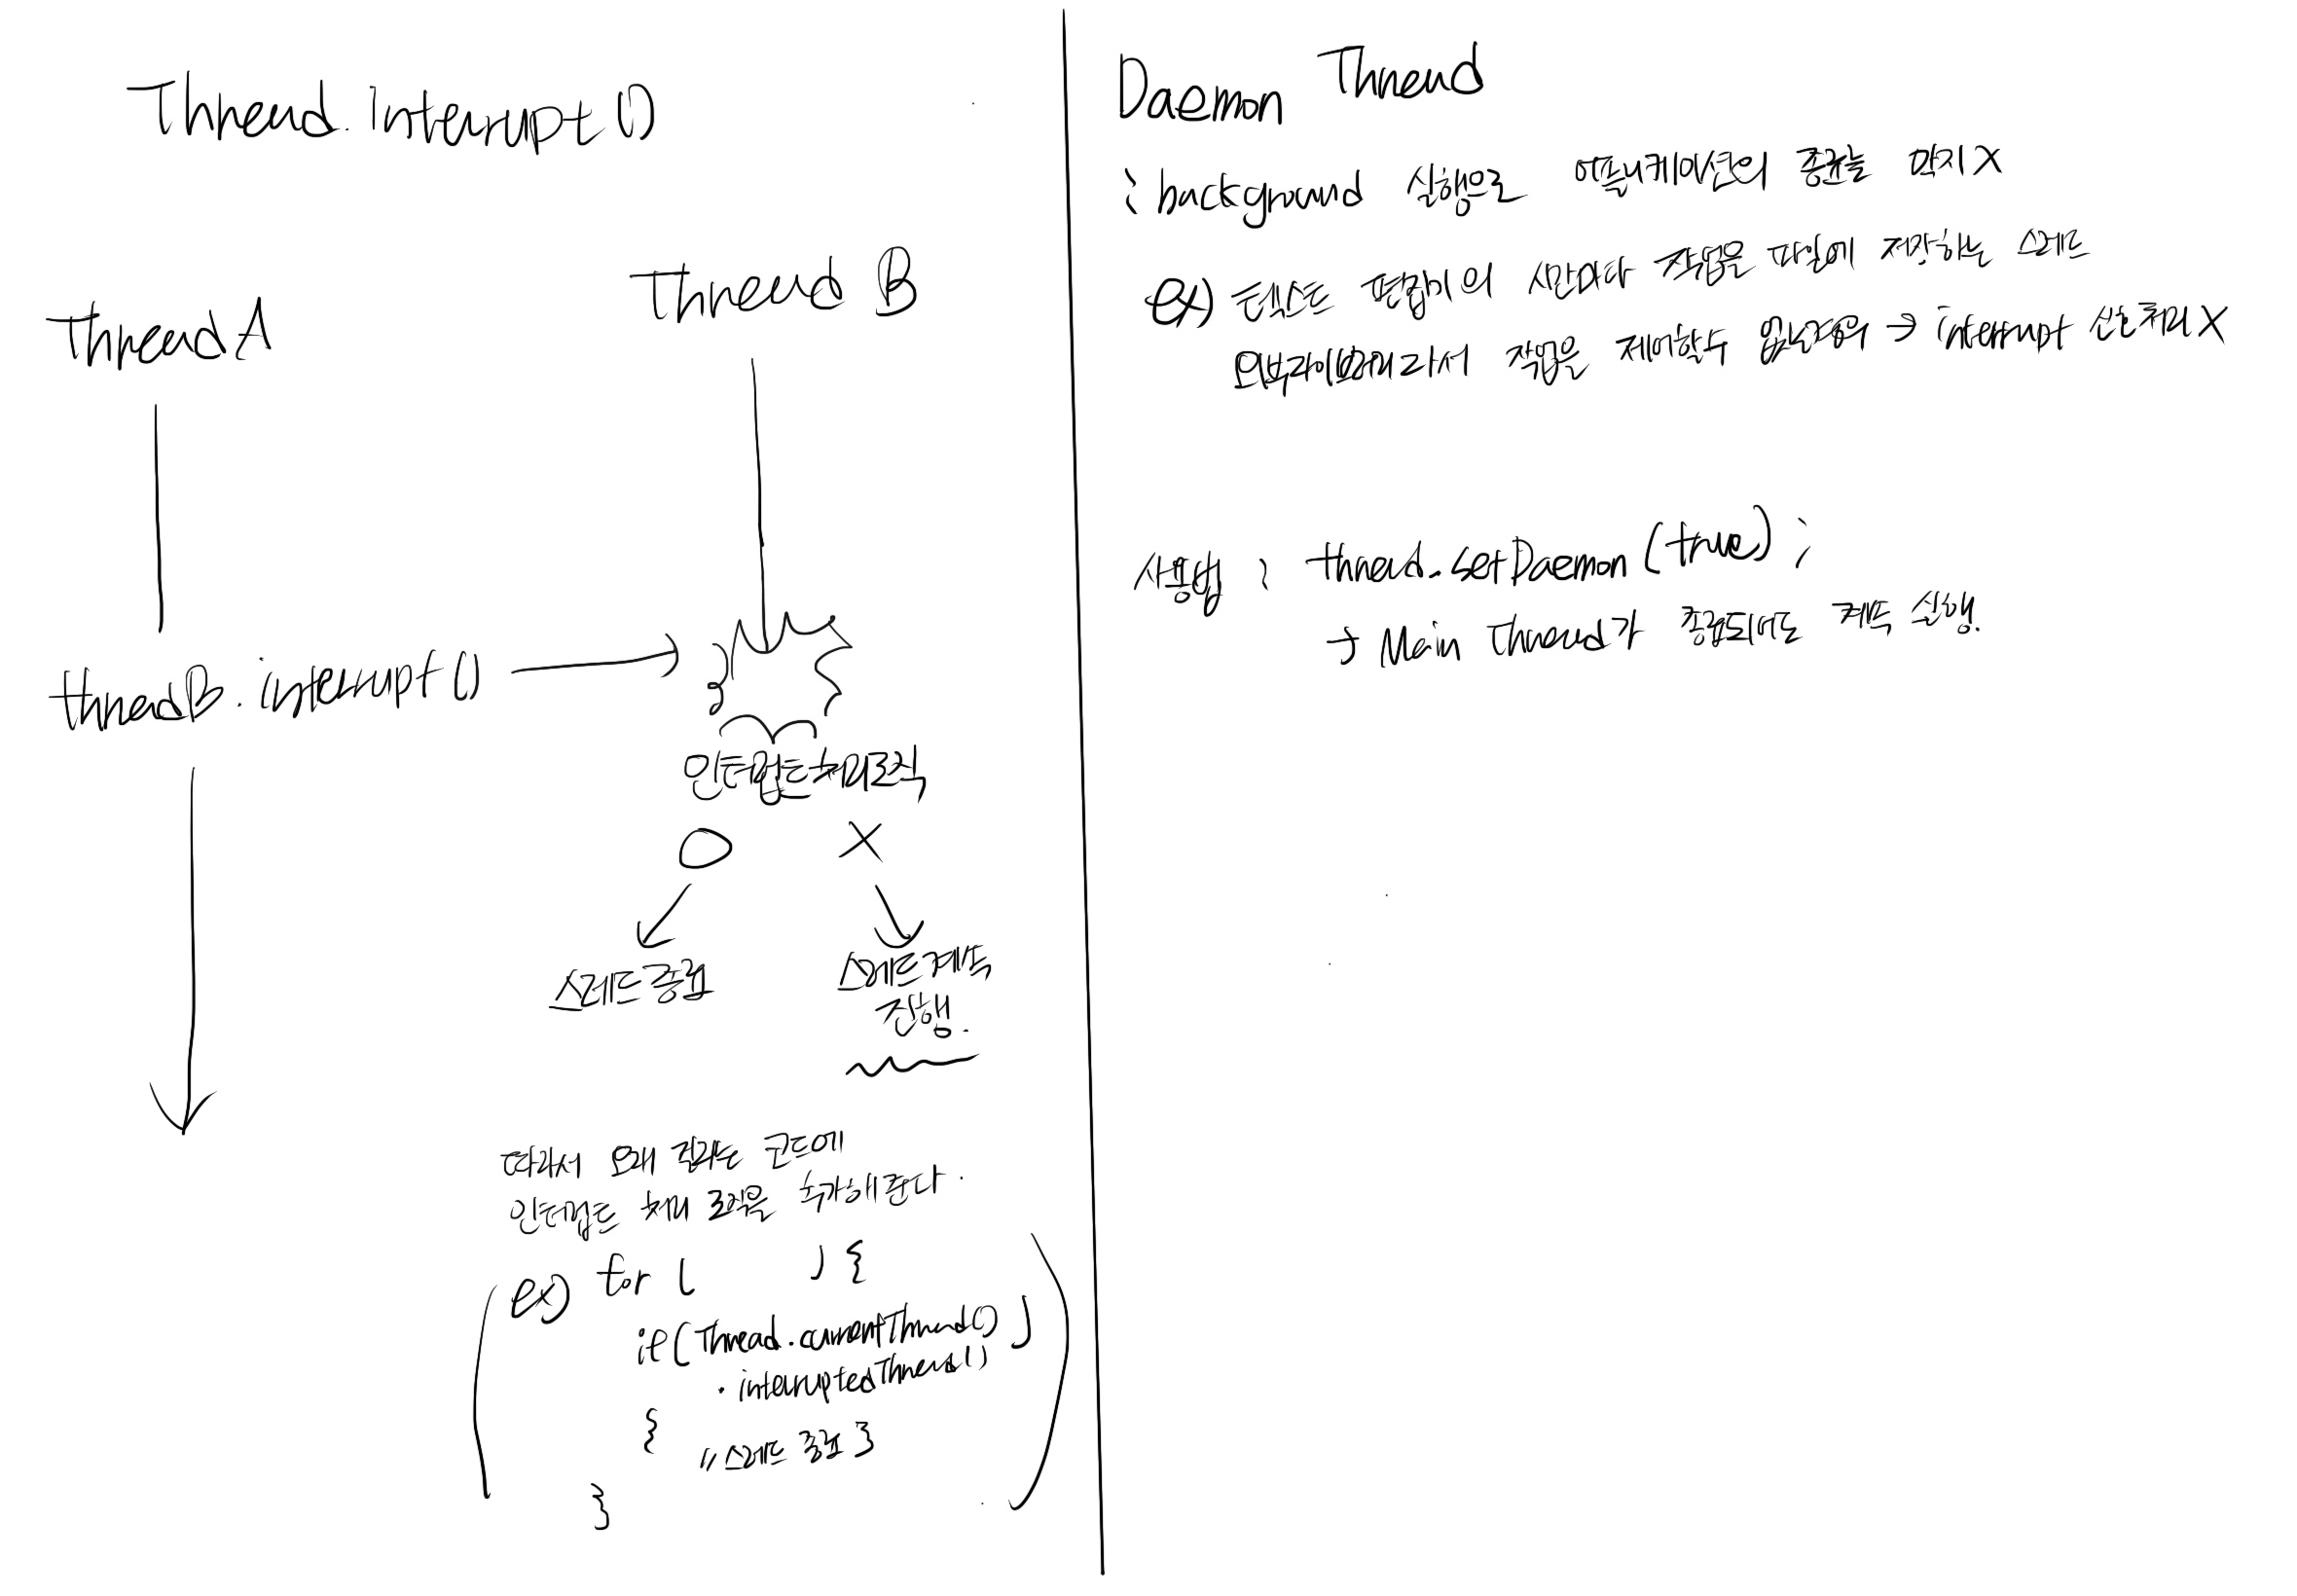 Thread.interrupt()
Thread A
Thread B
threadB.interrupt()
인터럽트 처리로직
O X
스레드 종료
스레드 계속
진행.
따라서 오래 걸리는 코드에
인터럽트 처리 로직을 추가해준다.
ex) for ( ) {
if (Thread.currentThread()
.interruptedThread())
{
// 스레드 종료 }
}
Daemon Thread
: background 실행으로 어플리케이션의 종료를 막지 X
ex) 텍스트 편집기의 시간마다 작업을 파일에 저장하는 스레드
외부라이브러리라서 작업을 제어할수 없는 → interrupt 신호처리 X
사용법 : thread.setDaemon(true);
→ Main Thread가 종료되어도 계속 실행.